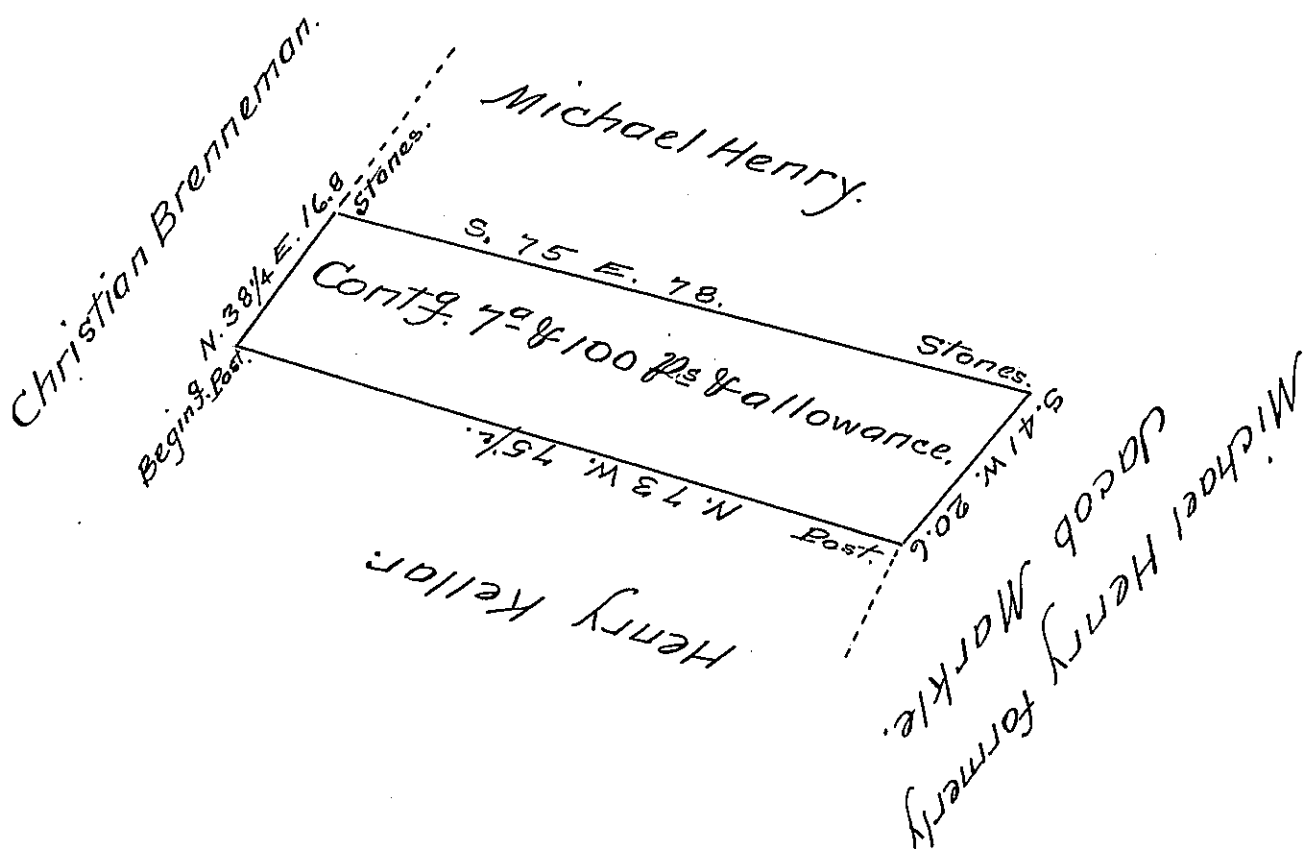 Christian Brenneman.
Michael Henry.
N. 38 1/4 E. 16.8
Stones.
S. 75 E. 78.
Stones.
Contg. 7a & 100 ps & allowance.
S. 41 W. 20.6
Post.
N. 73 W. 75 1/2.
Beging. Post.
Henry Kellar.
Michael Henry formerly
Jacob Markle.